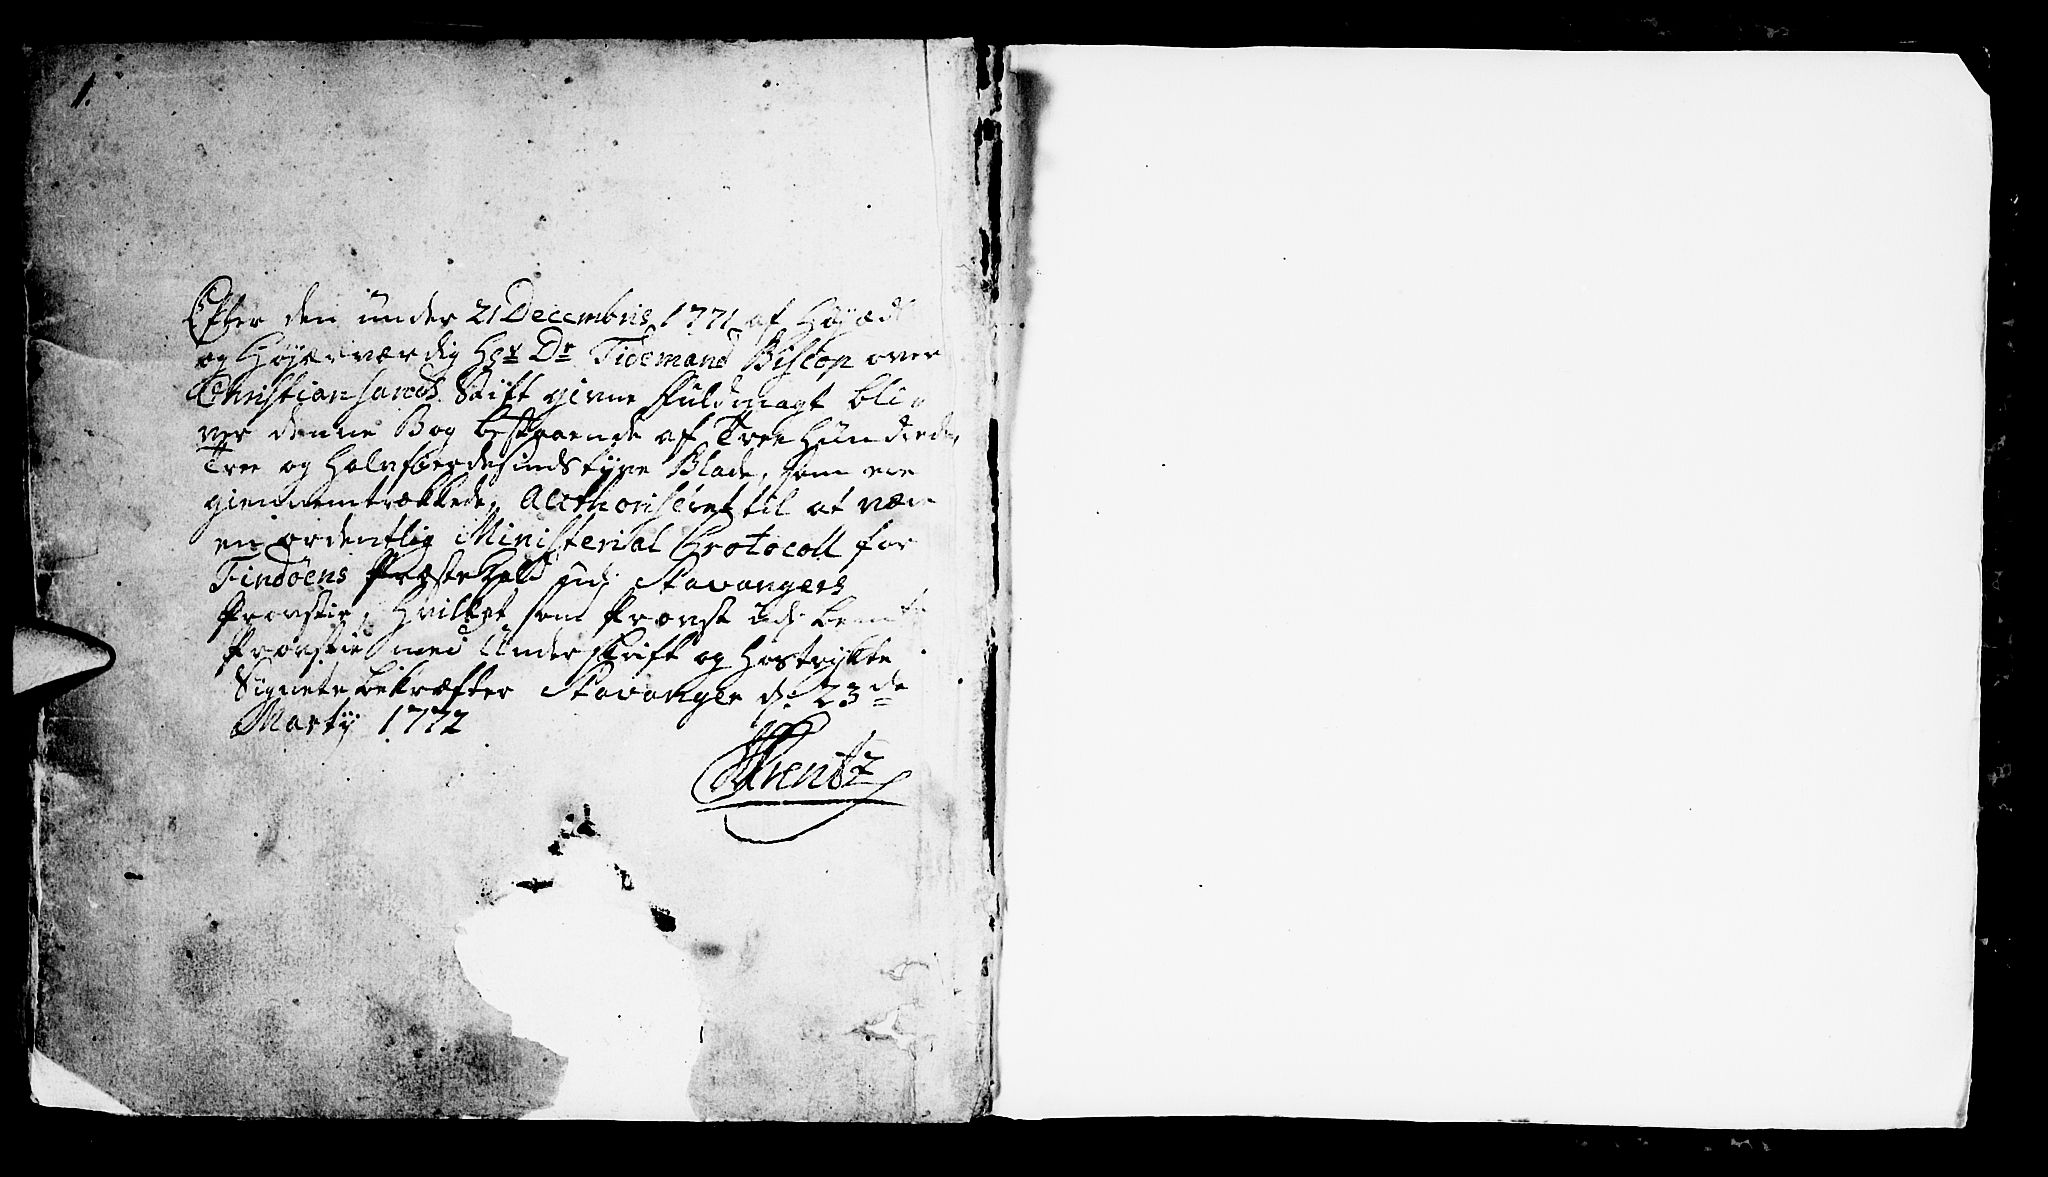 1.
Efter den under 21 Decembris 1771 af Høyædl
og Høyærværdig Hr Dr Tidemand Biscop over
Christiansands Stift givne Fuldmagt bli
ver denne Bog bestaaende af Tree Hundrede
Tree og Halvfierdesindstyve Blade, som ere
giennemtrækkede, Authoriseret til at være
en ordentlig Ministerial Protocoll for
Findøens Præstekald udj Stavangers
Provstie, Hvilket som Provst udj bemte
Provstie med Underskrift og Hostrykte
Signete bekræfter Stavanger d: 23de
Martij 1772